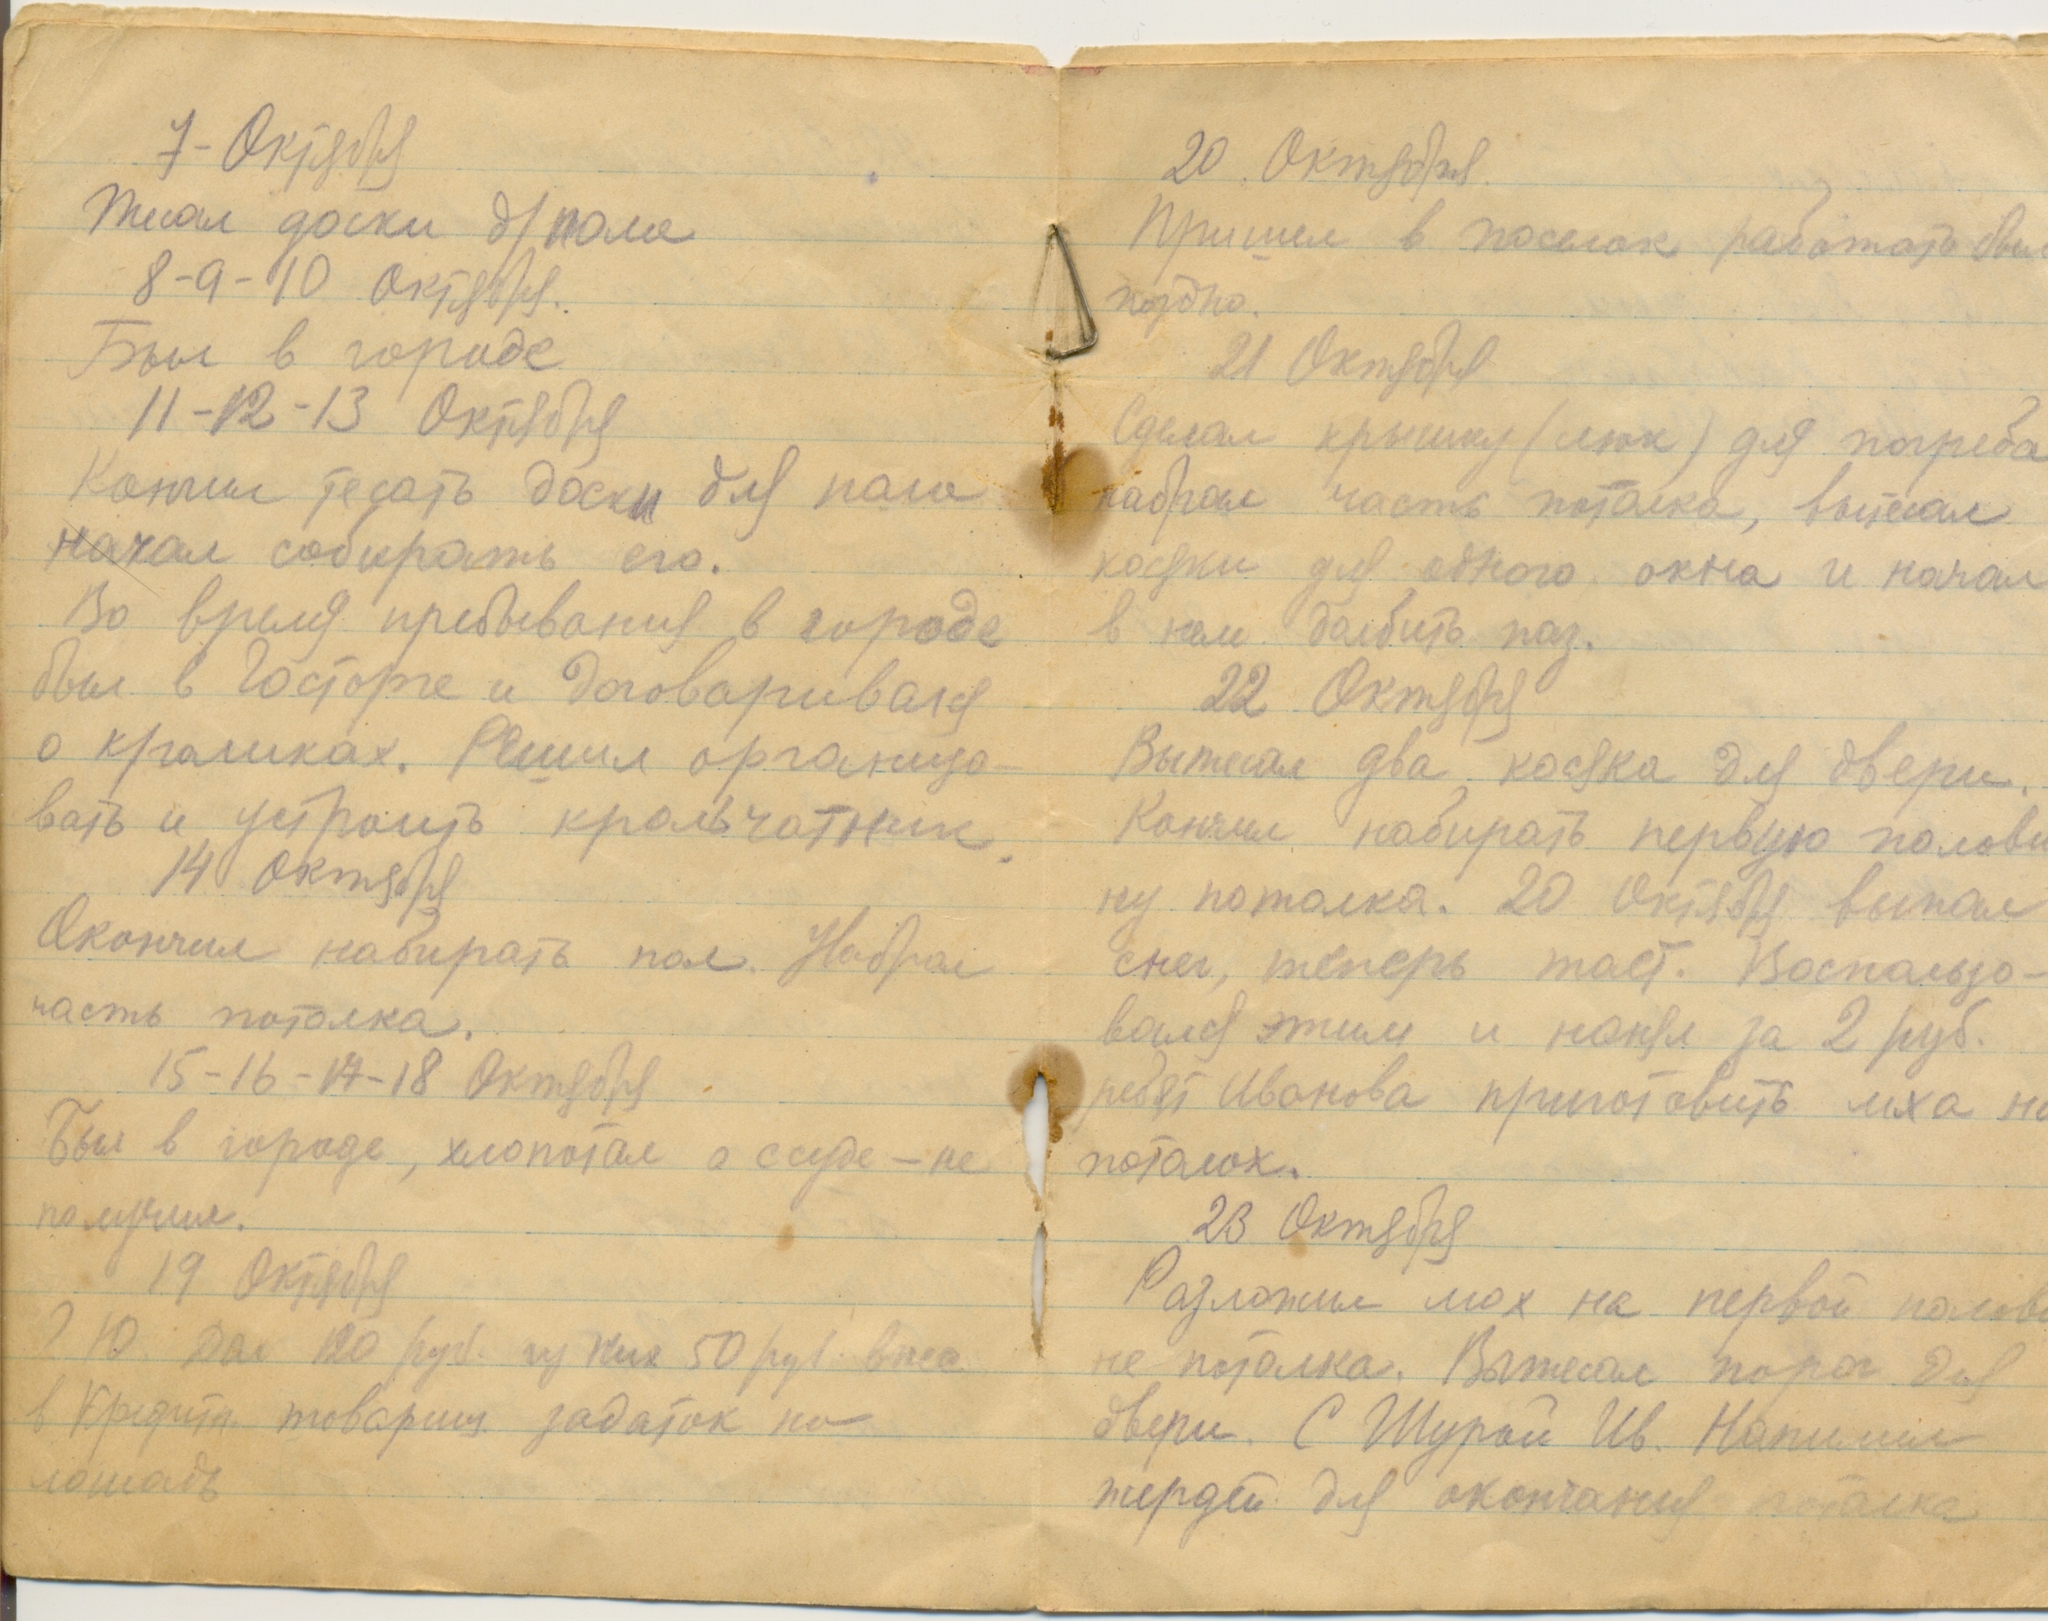 7 - Октября
Тесал доски д/пола
8-9-10 Октября.
Был в городе
11-12-13 Октября
Кончил тесать доски для пола
начал собирать его.
Во время пребывания в городе
был в Госторге и договаривался
о кроликах. Решил организо-
вать и устроить крольчатник.
14 Октября
Окончил набирать пол. Набрал
часть потолка.
15-16-17-18 Октября
Был в городе, хлопотал о ссуде – не
получил.
19 Октября
Ю. Дал 120 руб. из них 50 руб. внес
в Кредитн товарищ задаток на
лошадь
20 Октября.
Пришел в поселок работать было
поздно.
21 Октября
Сделал крышку (люк) для погреба
набрал часть потолка, вытесал
косяки для одного окна и начал
в нем долбить паз.
22 Октября
Вытесал два косяка для двери.
Кончил набирать первую полови
ну потолка. 20 Октября выпал
снег, теперь тает. Воспользо-
вался этим и нанял за 2 руб.
ребят Иванова приготовить мха на
потолок.
23 Октября
Разложил мох на первой полови
не потолка. Вытесал порог для
двери. С Шурой Ив. Напилил
жердей для окончания потолка